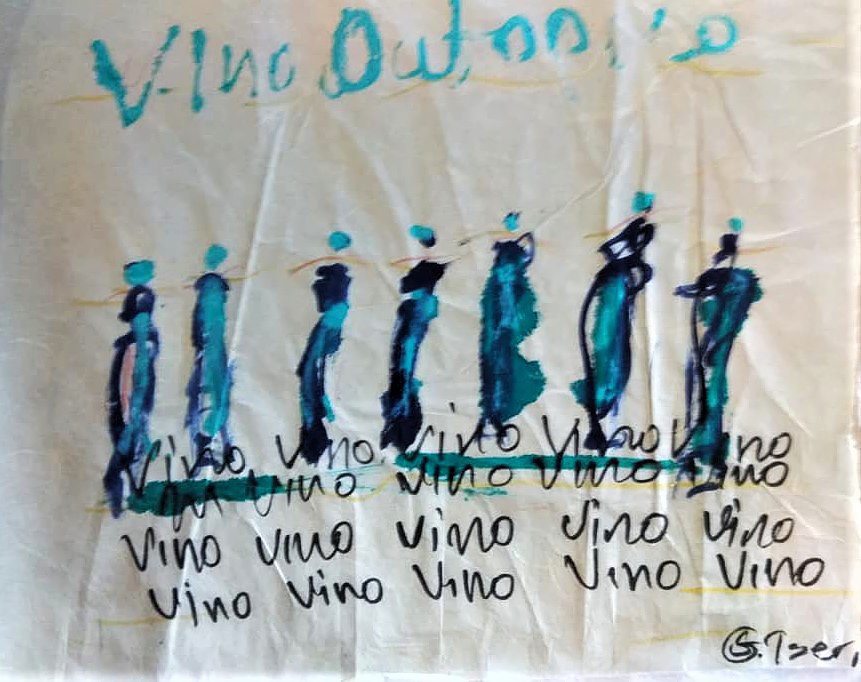 Vino
Vino Vino Vino Vino Vino
Vino Vino Vino Vino
Vino Vino Vino Vino Vino
Vino Vino Vino Vino Vino